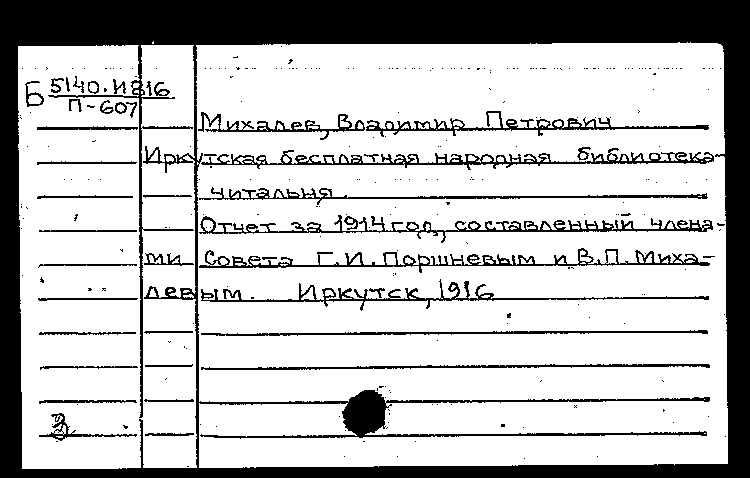 Б 5140.И816
П-607
Михалев, Владимир Петрович
Иркутская бесплатная народная библиотека-
читальня.
Отчет за 1914 год, составленный члена-
ми Совета Г.И. Поршневым и В.П. Миха-
левым. Иркутск, 1916